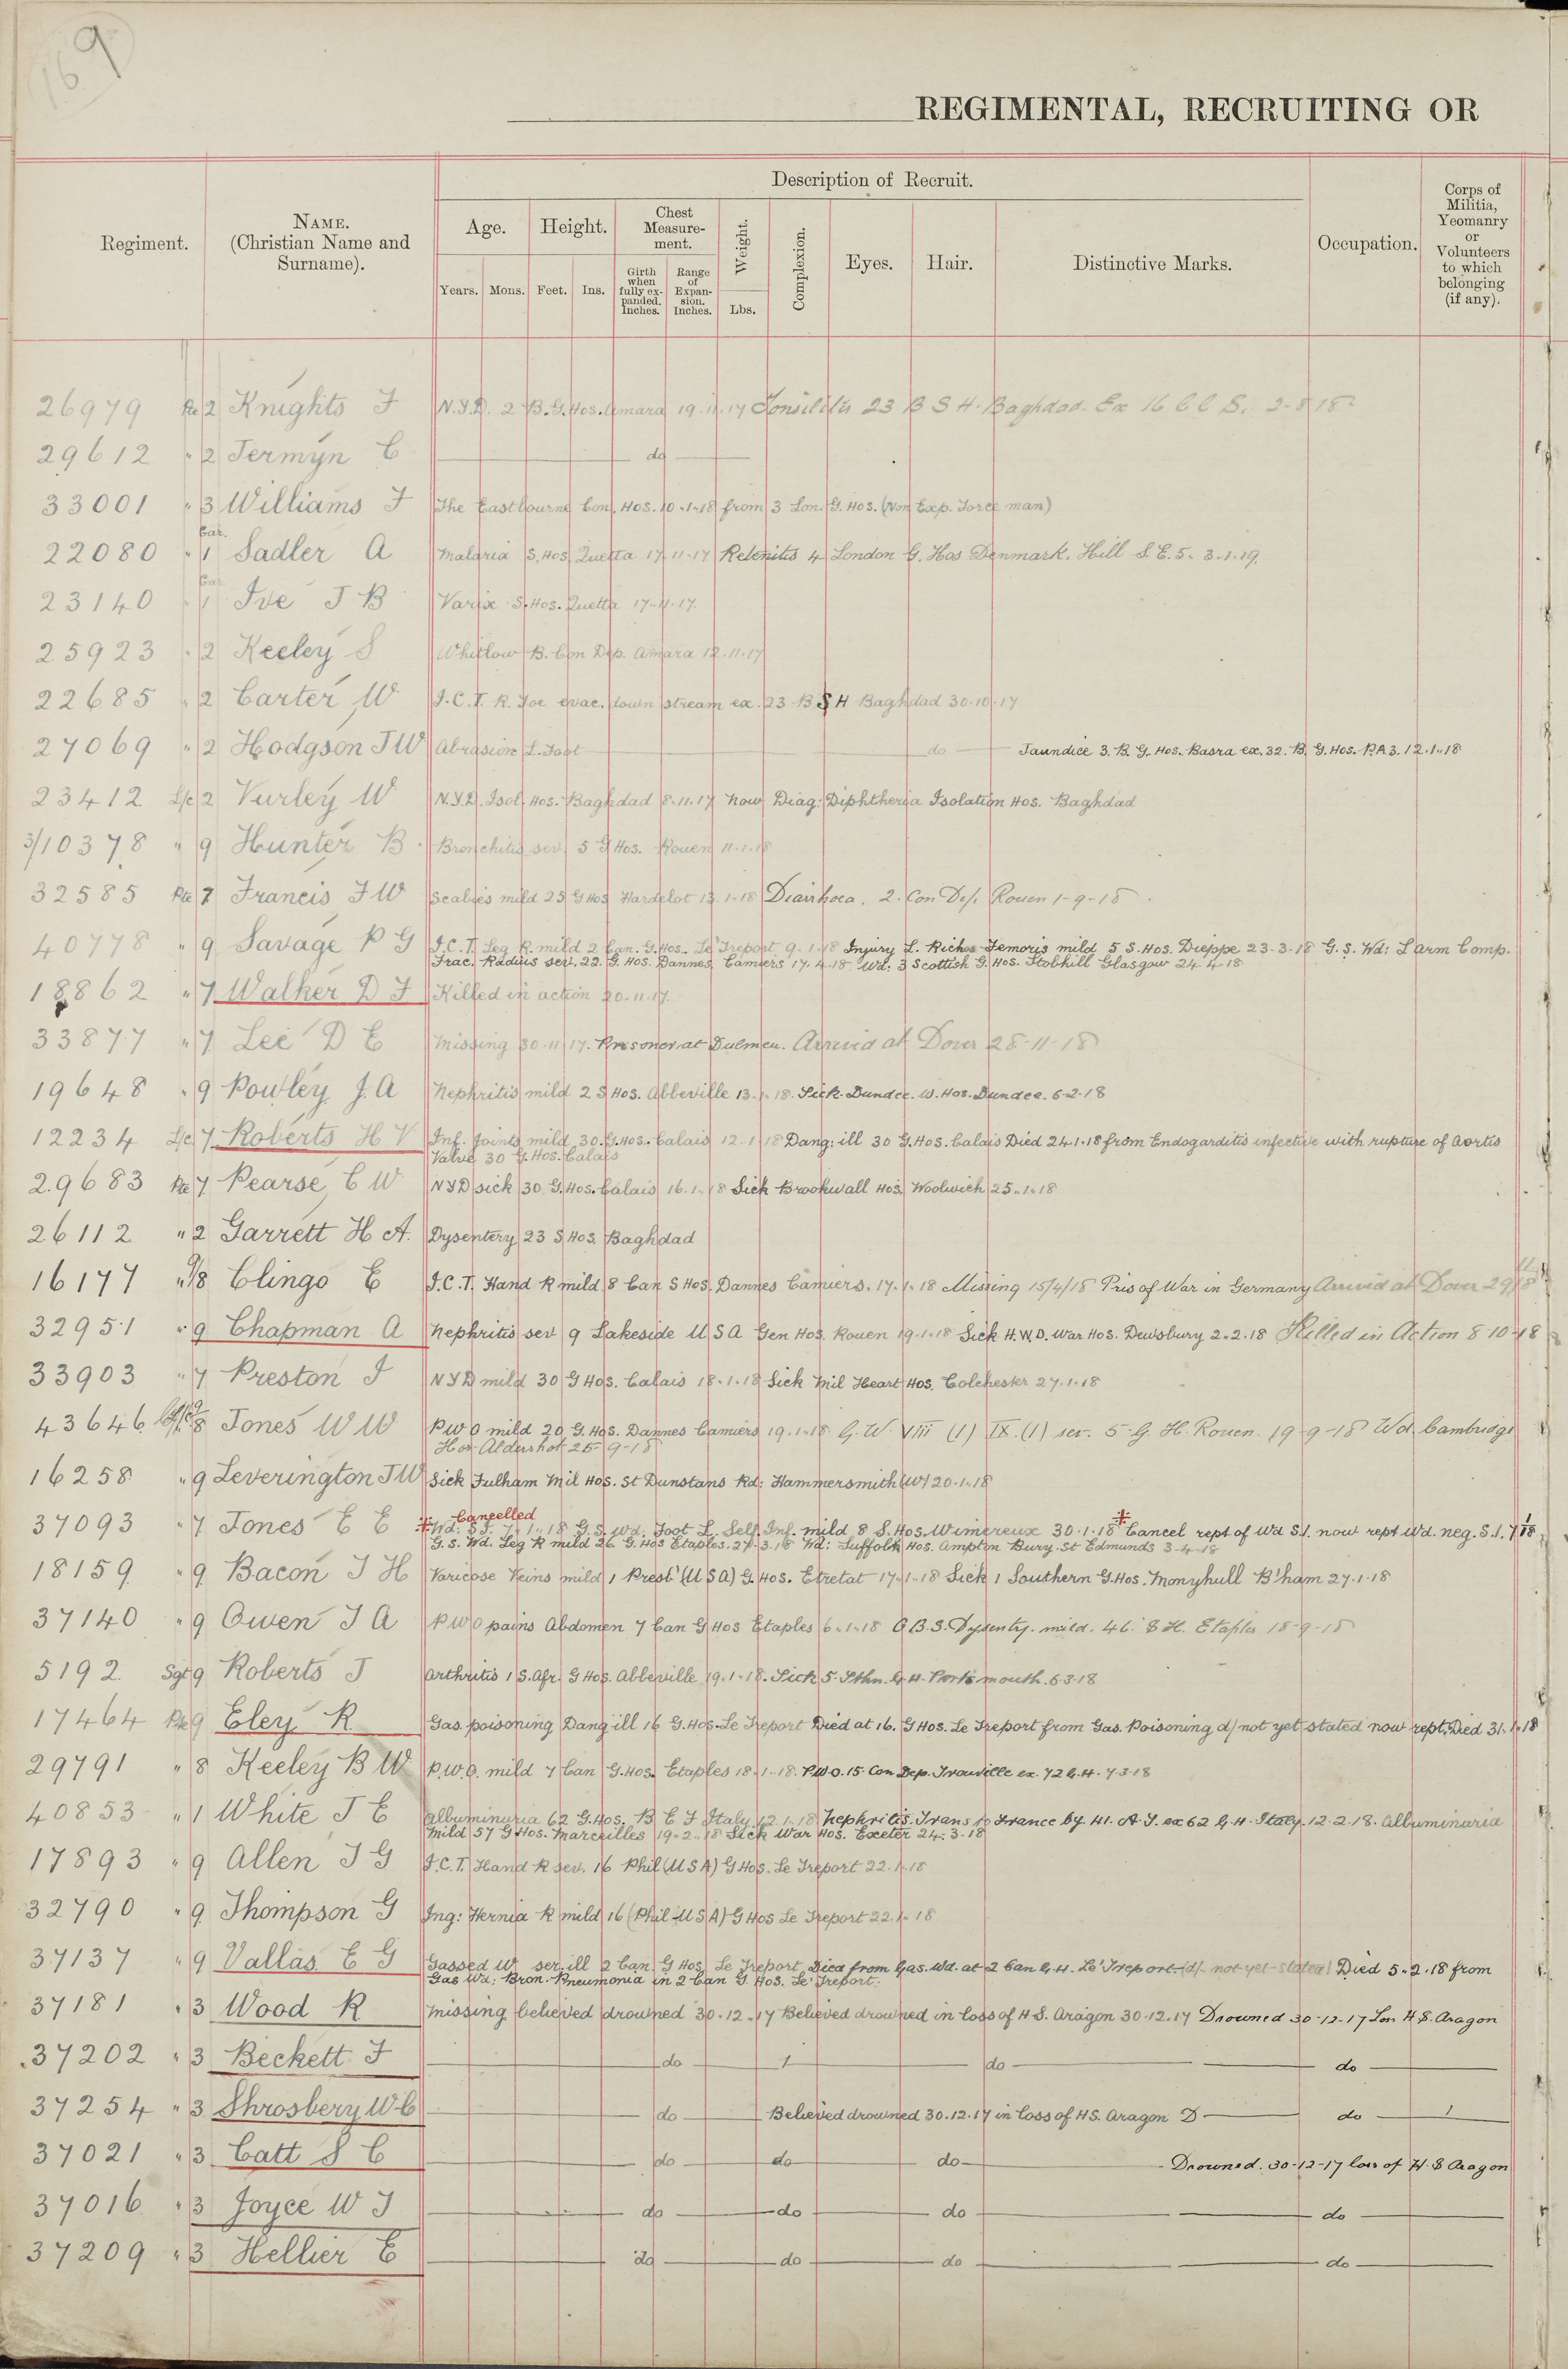 169
REGIMENTAL, RECRUITING OR
Regiment.
NAME.
(Christian Name and
Surname).
Description of Recruit.
Age.
Height.
Chest
Measure-
ment.
Weight.
Complexion.
Eyes.
Hair.
Distinctive Marks.
Occupation.
Corps of
Militia,
Yeomanry
or
Volunteers
to which
belonging
(if any).
Years.
Mons.
Feet.
Ins.
Girth
when
fully ex-
panded.
Inches.
Range
of
Expan-
sion.
Inches.
Lbs.
26979 Pte 2 Knights F N.Y.D. 2 B.G. Hos. Amara 19.11.17 Tonsilitis 23 B S H. Baghdad. Ex 16 C C S. 2-8 18
29612 " 2 Jermyn C do
33001 " 3 Williams F The Eastbourne Con. Hos. 10.1.18 from 3 Lon. G. Hos. (Non Exp. Force man)
22080 " Gar. 1 Sadler A Malaria S. Hos. Quetta 17.11.17 Retenitis 4 London G. Hos Denmark. Hill S.E.5. 3.1.19.
23140 " Gar 1 Ive J B Varix S. Hos. Quetta 17.11.17.
25923 " 2 Keeley S Whitlow B. Con Dep. Amara 12.11.17
22685 " 2 Carter W I.C.T. R. Toe evac. down stream ex. 23 B S H Baghdad 30.10.17
27069 " 2 Hodgson J W Abrasion L. Foot do Jaundice 3. B. G. Hos. Basra ex. 32. B. G. Hos. P.A 3. 12.1.18
23412 L/c 2 Vurley W N.Y.D. Isol. Hos. Baghdad 8.11.17 now Diag: Diphtheria Isolation Hos. Baghdad
3/10378 " 9 Hunter B Bronchitis sev. 5 G Hos. Rouen 11.1.18
32585 Pte 7 Francis F W Scabies mild 25 G Hos Hardelot 13.1.18 Diarrhoea. 2. Con Dep. Rouen 1-9-18
40778 " 9 Savage P G I.C.T. Leg R. mild 2 Can. G. Hos. Le Treport 9.1.18 Injury L. Femoris mild 5 S. Hos. Dieppe 23-3-18 G.S. Wd: L arm Comp.
Frac. Raduis sev. 22. G. Hos. Dannes Camiers 17.4.18 Wd: 3 Scottish G. Hos. Stobhill Glasgow 24.4.18
18862 " 7 Walker D F Killed in action 20.11.17.
33877 " 7 Lee D E Missing 30.11.17. Prisoner at Dulmen. Arrived at Dover 28-11-18
19648 " 9 Powley J. A Nephritis mild 2 S Hos. Abbeville 13.1.18. Sick. Dundee. W. Hos. Dundee. 6-2-18
12234 L/c 7 Roberts H V Inf. Joints mild 30. G. Hos. Calais 12.1.18 Dang: ill 30 G. Hos. Calais Died 24.1.18 from Endogarditis infective with rupture of Aortis
Valve 30 G. Hos. Calais
29683 Pte 7 Pearse C W N Y D sick 30 G. Hos. Calais 16.1.18 Sick Brookwall Hos. Woolwich 25.1.18
26112 " 2 Garrett H A. Dysentery 23 S Hos. Baghdad
16177 " 9/8 Clingo E I.C.T. Hand R mild 8 Can S Hos. Dannes Camiers. 17.1.18 Missing 15/4/18 Pris of War in Germany Arrived at Dover 29/11/18
32951 " 9 Chapman A Nephritis sev 9 Lakeside U S A Gen Hos. Rouen 19.1.18 Sick H.W.D. War Hos. Dewsbury 2.2.18 Killed in Action 8 10-18
33903 " 7 Preston J N Y D mild 30 G Hos. Calais 18.1.18 Sick Mil Heart Hos. Colchester 27.1.18
43646 8 Jones W W P W O mild 20 G. Hos. Dannes Camiers 19.1.18 G. W. VIII (1) IX. (1) sev. 5 G. H. Rouen. 19-9-18 Wd. Cambridge
Hos. Aldershot 25-9-18
16258 " 9 Leverington J W Sick Fulham Mil Hos. St Dunstans Rd: Hammersmith (W) 20.1.18
Cancelled
37093 " 7 Jones E E Wd: S.I. 7.1.18 G.S. Wd. Foot L. Self. Inf. mild 8 S. Hos. Wimereux 30.1.18 Cancel rept of Wd S.I. now rept Wd. neg. S.I. 7 1 18
G.S. Wd. Leg R mild 26. G. Hos Etaples. 27.3.18 Wd: Suffolk Hos. Ampton Bury. St Edmunds 3-4-18
18159 " 9 Bacon J H Varicose Veins mild 1 Presb' (U S A) G. Hos. Etretat 17.1.18 Sick 1 Southern G. Hos. Monyhull B'ham 27.1.18
37140 " 9 Owen J A P W O pains Abdomen 7 Can G Hos Etaples 6.1.18 O B. S. Dysentry. mild. 46. S H. Etaples 18-9-18
5192 Sgt 9 Roberts J Arthritis 1 S. Afr. G Hos. Abbeville 19.1.18. Sick 5. Sthn. G. H. Portsmouth. 6.3.18
17464 Pte 9 Eley R Gas. poisoning Dang ill 16 G. Hos. Le Treport Died at 16. G Hos. Le Treport from Gas. Poisoning d/ not yet stated now rept. Died 31.1.18
29791 " 8 Keeley B W P.W.O. mild 7 Can G. Hos. Etaples 18.1.18. P.W.O. 15 Con Dep. Trouville ex. 72 G.H. 7.3.18
40853 " 1 White J E Albuminuria 62 G. Hos. B E F Italy 12.1.18 Nephritis. Trans to France by 41. A. T. ex 62 G.H. Italy. 12.2.18. Albuminuria
mild 57 G. Hos. Marceilles 19.2.18 Sick War Hos. Exeter 24.3.18
17893 " 9 Allen J G I.C.T. Hand R sev. 16 Phil (U S A) G Hos. Le Treport 22.1.18
32790 " 9 Thompson G Ing: Hernia R mild 16 (Phil U S A) G Hos Le Treport 22.1.18
37137 " 9 Vallas E G Gassed W ser. ill 2 Can. G Hos. Le Treport Died from Gas. Wd. at 2 Can G. H. Le Treport (d/- not yet stated) Died 5.2.18 from
Gas Wd: Bron. Pneumonia in 2 Can G. Hos. Le Treport.
37181 " 3 Wood R Missing believed drowned 30.12.17 Believed drowned in loss of H S. Aragon 30.12.17 Drowned 30-12-17 Loss H.S. Aragon
37202 " 3 Beckett F do do do
37254 " 3 Shrosbery W C do Believed drowned 30.12.17 in loss of HS. Aragon D do
37021 " 3 Catt S C do do do Drowned. 30-12-17 loss of H. S Aragon
37016 " 3 Joyce W J do do do do
37209 " 3 Hellier E do do do do